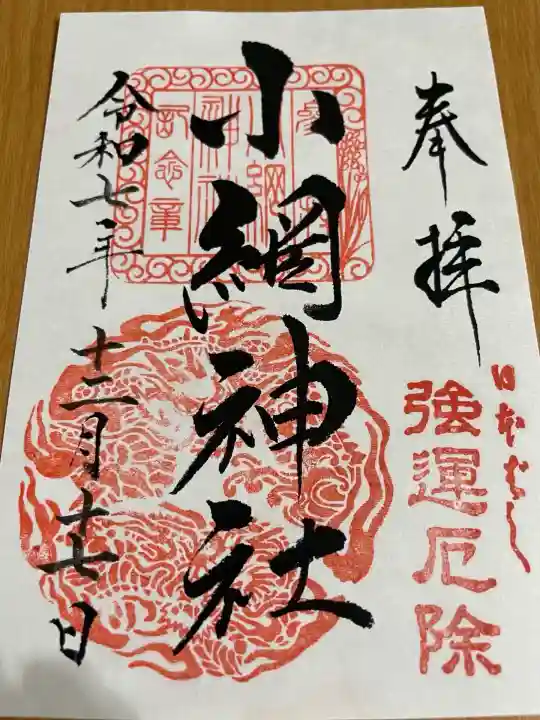 奉拝
日本ばし
強運厄除
小網神社
令和七年
十二月十七日